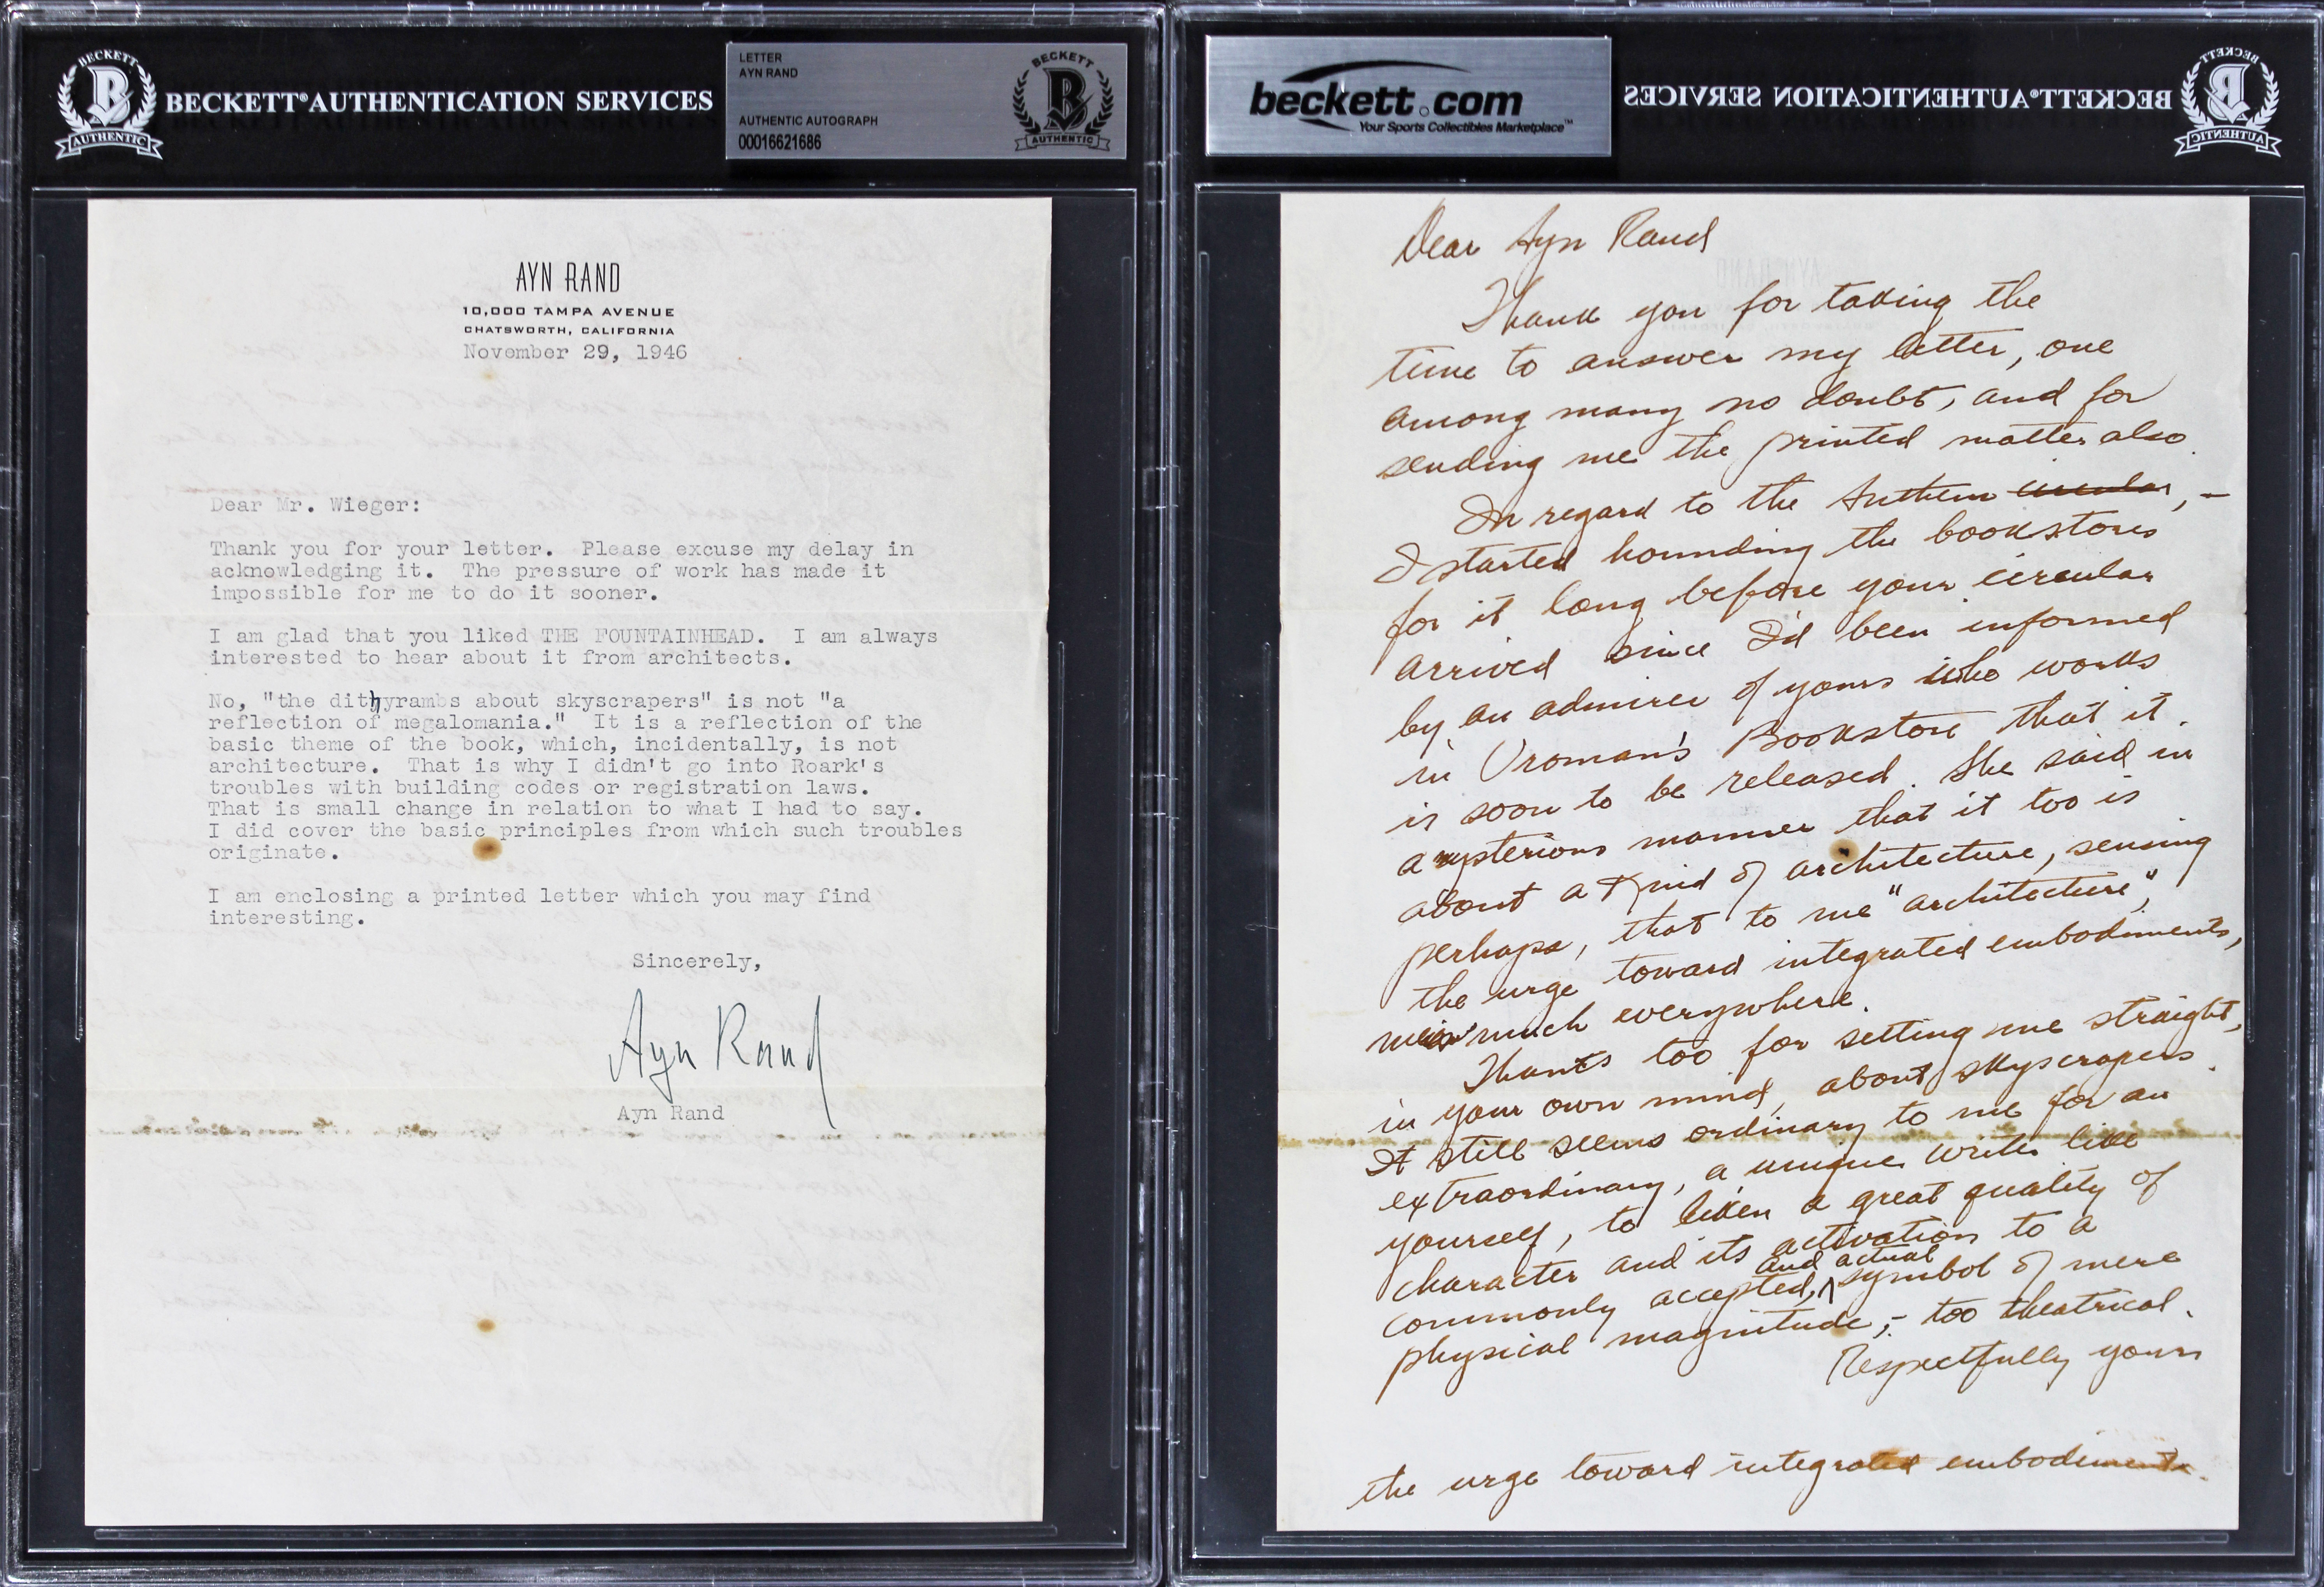 BECKETT
B
AUTHENTIC
BECKETT® AUTHENTICATION SERVICES
LETTER
AYN RAND
AUTHENTIC AUTOGRAPH
00016621686
BECKETT
B
AUTHENTIC
AYN RAND
10,000 TAMPA AVENUE
CHATSWORTH, CALIFORNIA
November 29, 1946
Dear Mr. Wieger:
Thank you for your letter. Please excuse my delay in
acknowledging it. The pressure of work has made it
impossible for me to do it sooner.
I am glad that you liked THE FOUNTAINHEAD. I am always
interested to hear about it from architects.
No, "the dithyrambs about skyscrapers" is not "a
reflection of megalomania." It is a reflection of the
basic theme of the book, which, incidentally, is not
architecture. That is why I didn't go into Roark's
troubles with building codes or registration laws.
That is small change in relation to what I had to say.
I did cover the basic principles from which such troubles
originate.
I am enclosing a printed letter which you may find
interesting.
Sincerely,
Ayn Rand
Ayn Rand
beckett.com
Your Sports Collectibles Marketplace™
BECKETT® AUTHENTICATION SERVICES
BECKETT
B
AUTHENTIC
Dear Ayn Rand
Thank you for taking the
time to answer my letter, one
among many no doubt, and for
sending me the printed matter also.
In regard to the Anthem circular, –
I started hounding the bookstores
for it long before your circular
arrived since I'd been informed
by an admirer of yours who works
in Vroman's Bookstore that it
is soon to be released. She said in
a mysterious manner that it too is
about a kind of architecture, sensing
perhaps, that to me "architecture",
the urge toward integrated embodiments,
much everywhere.
Thanks too for setting me straight,
in your own mind, about skyscrapers.
It still seems ordinary to me for an
extraordinary, a unique writer like
yourself, to liken a great quality of
character and its activation to a
commonly accepted, and actual symbol of mere
physical magnitude, – too theatrical.
Respectfully yours
the urge toward integrated embodiments.